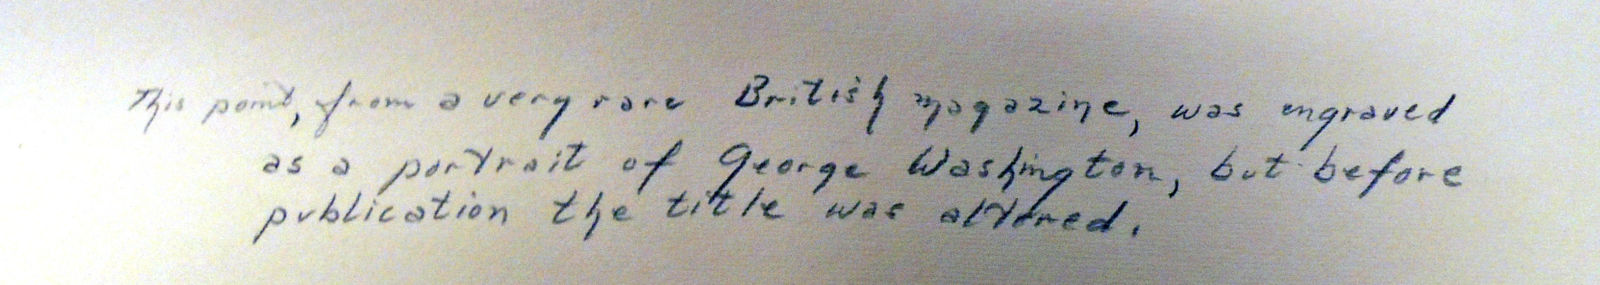 This point, from a very rare British magazine, was engraved
as a portrait of George Washington, but before
publication the title was altered.